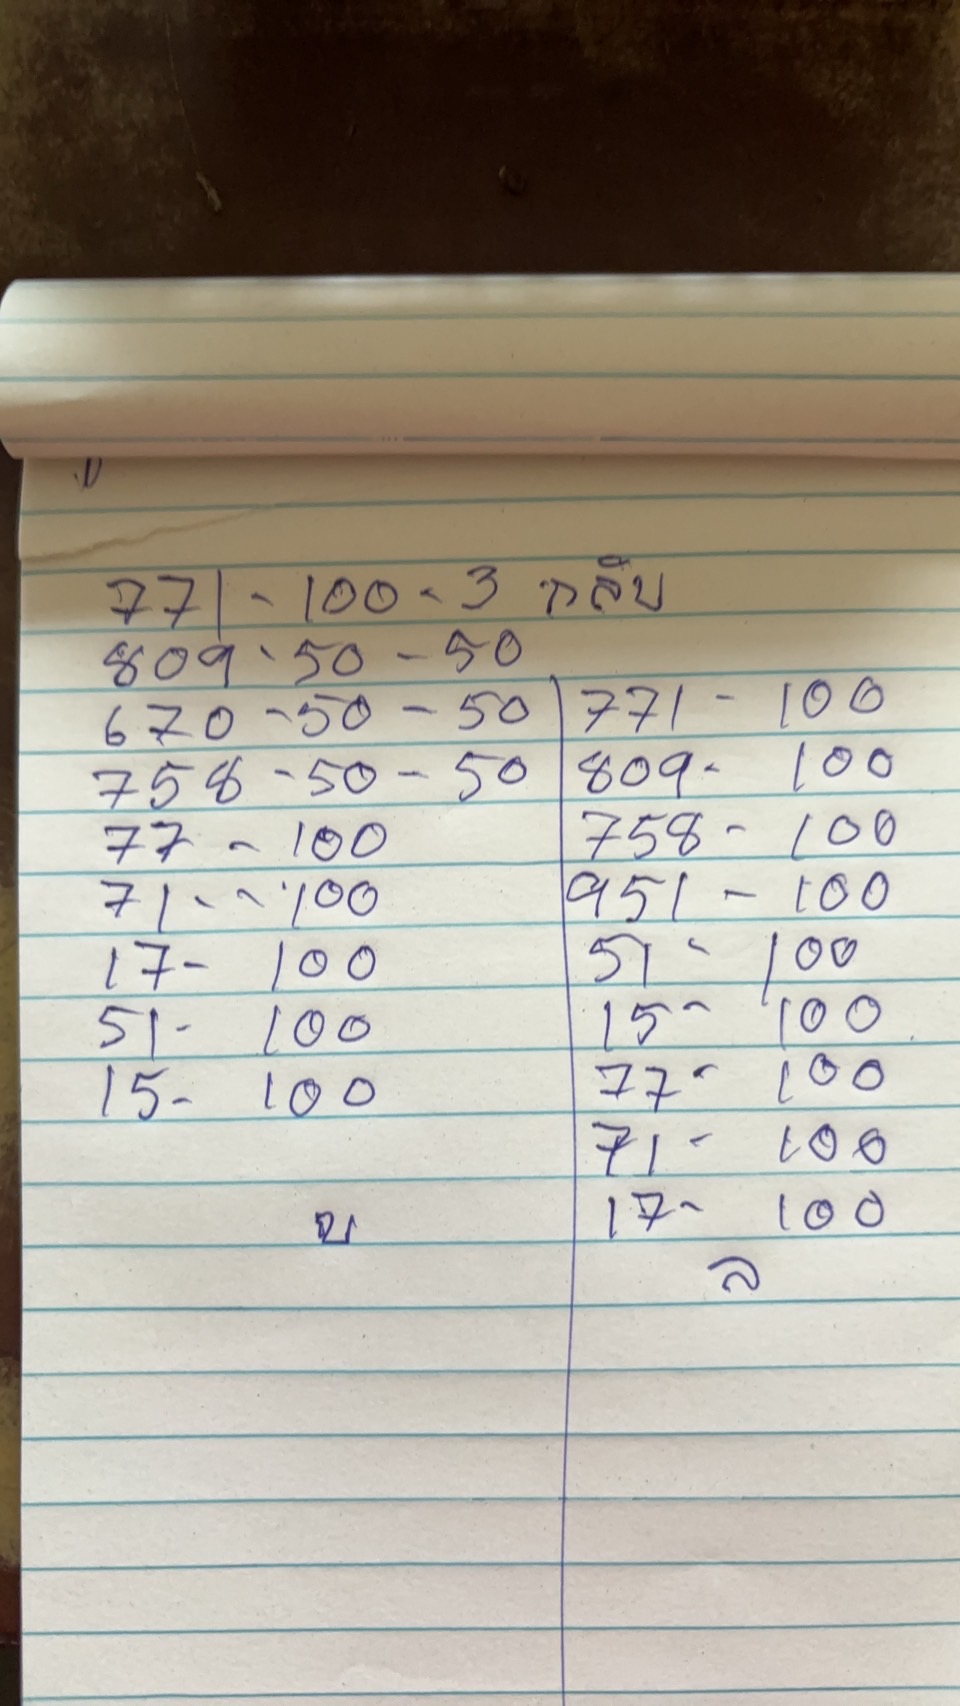 771 - 100 - 3 กลับ
809 - 50 - 50
670 - 50 - 50
758 - 50 - 50
77 - 100
71 - - 100
17 - 100
51 - 100
15 - 100
บ
771 - 100
809 - 100
758 - 100
951 - 100
51 - 100
15 - 100
77 - 100
71 - 100
17 - 100
ล